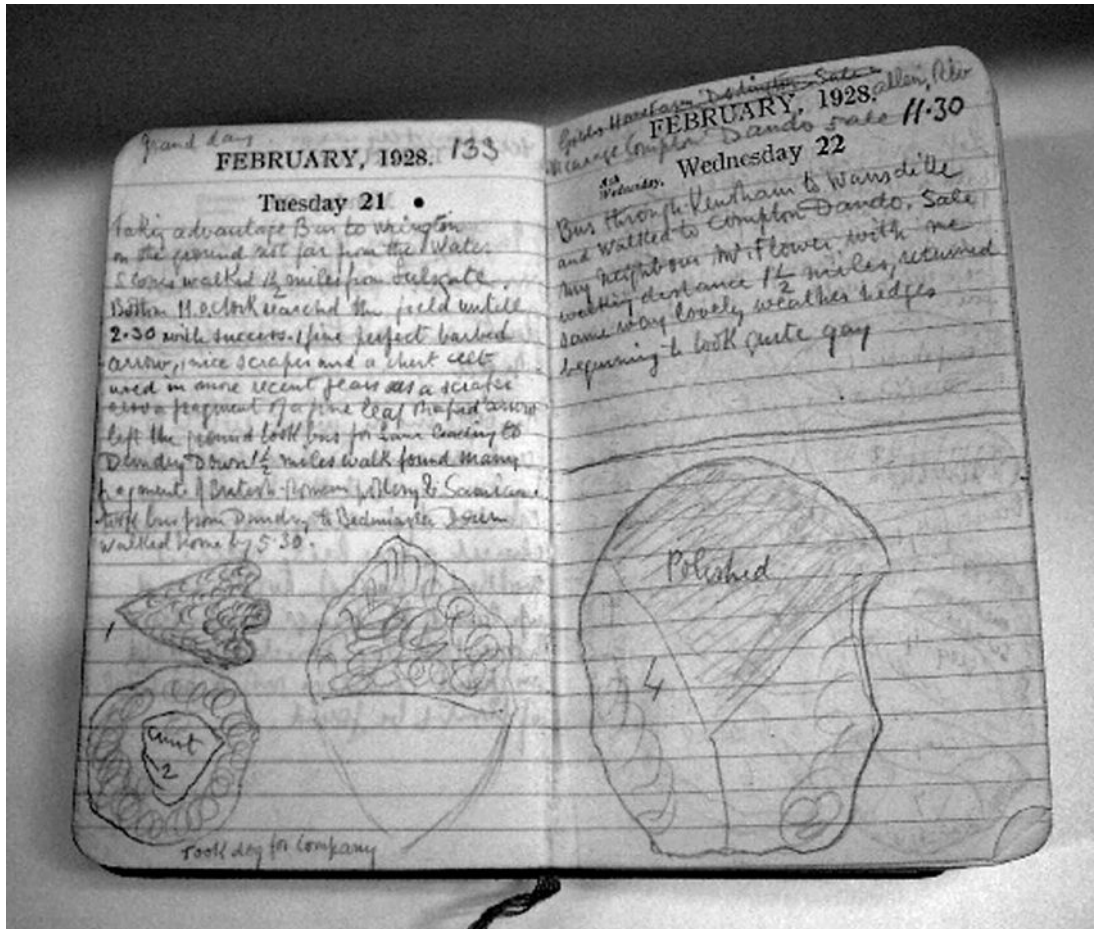 Grand day
FEBRUARY, 1928. 133
Tuesday 21
Taking advantage Bus to Wrington
on the ground not far from the Water
walked 1½ miles from Lulsgate
Bottom 11. o.clock searched the field untill
2.30 with success. 1 fine perfect barbed
arrow, 1 nice scraper and a chert celt
used in more recent years as a scraper
also a fragment of a fine leaf shaped arrow
left the ground took bus for Lane leading to
Dundry Down 1½ miles walk found many
fragments of British-Roman pottery & Samian
took bus from Dundry to Bedminster Down
walked home by 5.30.
1
2
Took dog for company
Farm Dodington Sale
FEBRUARY, 1928.
Vicarage Compton Dando Sale 11.30
Ash Wednesday. Wednesday 22
Bus through Keynsham to Wansdike
and walked to Compton Dando. Sale
my neighbour Mr. Flower with me
walking distance 1½ miles, returned
same way lovely weather hedges
beginning to look quite gay
Polished
4